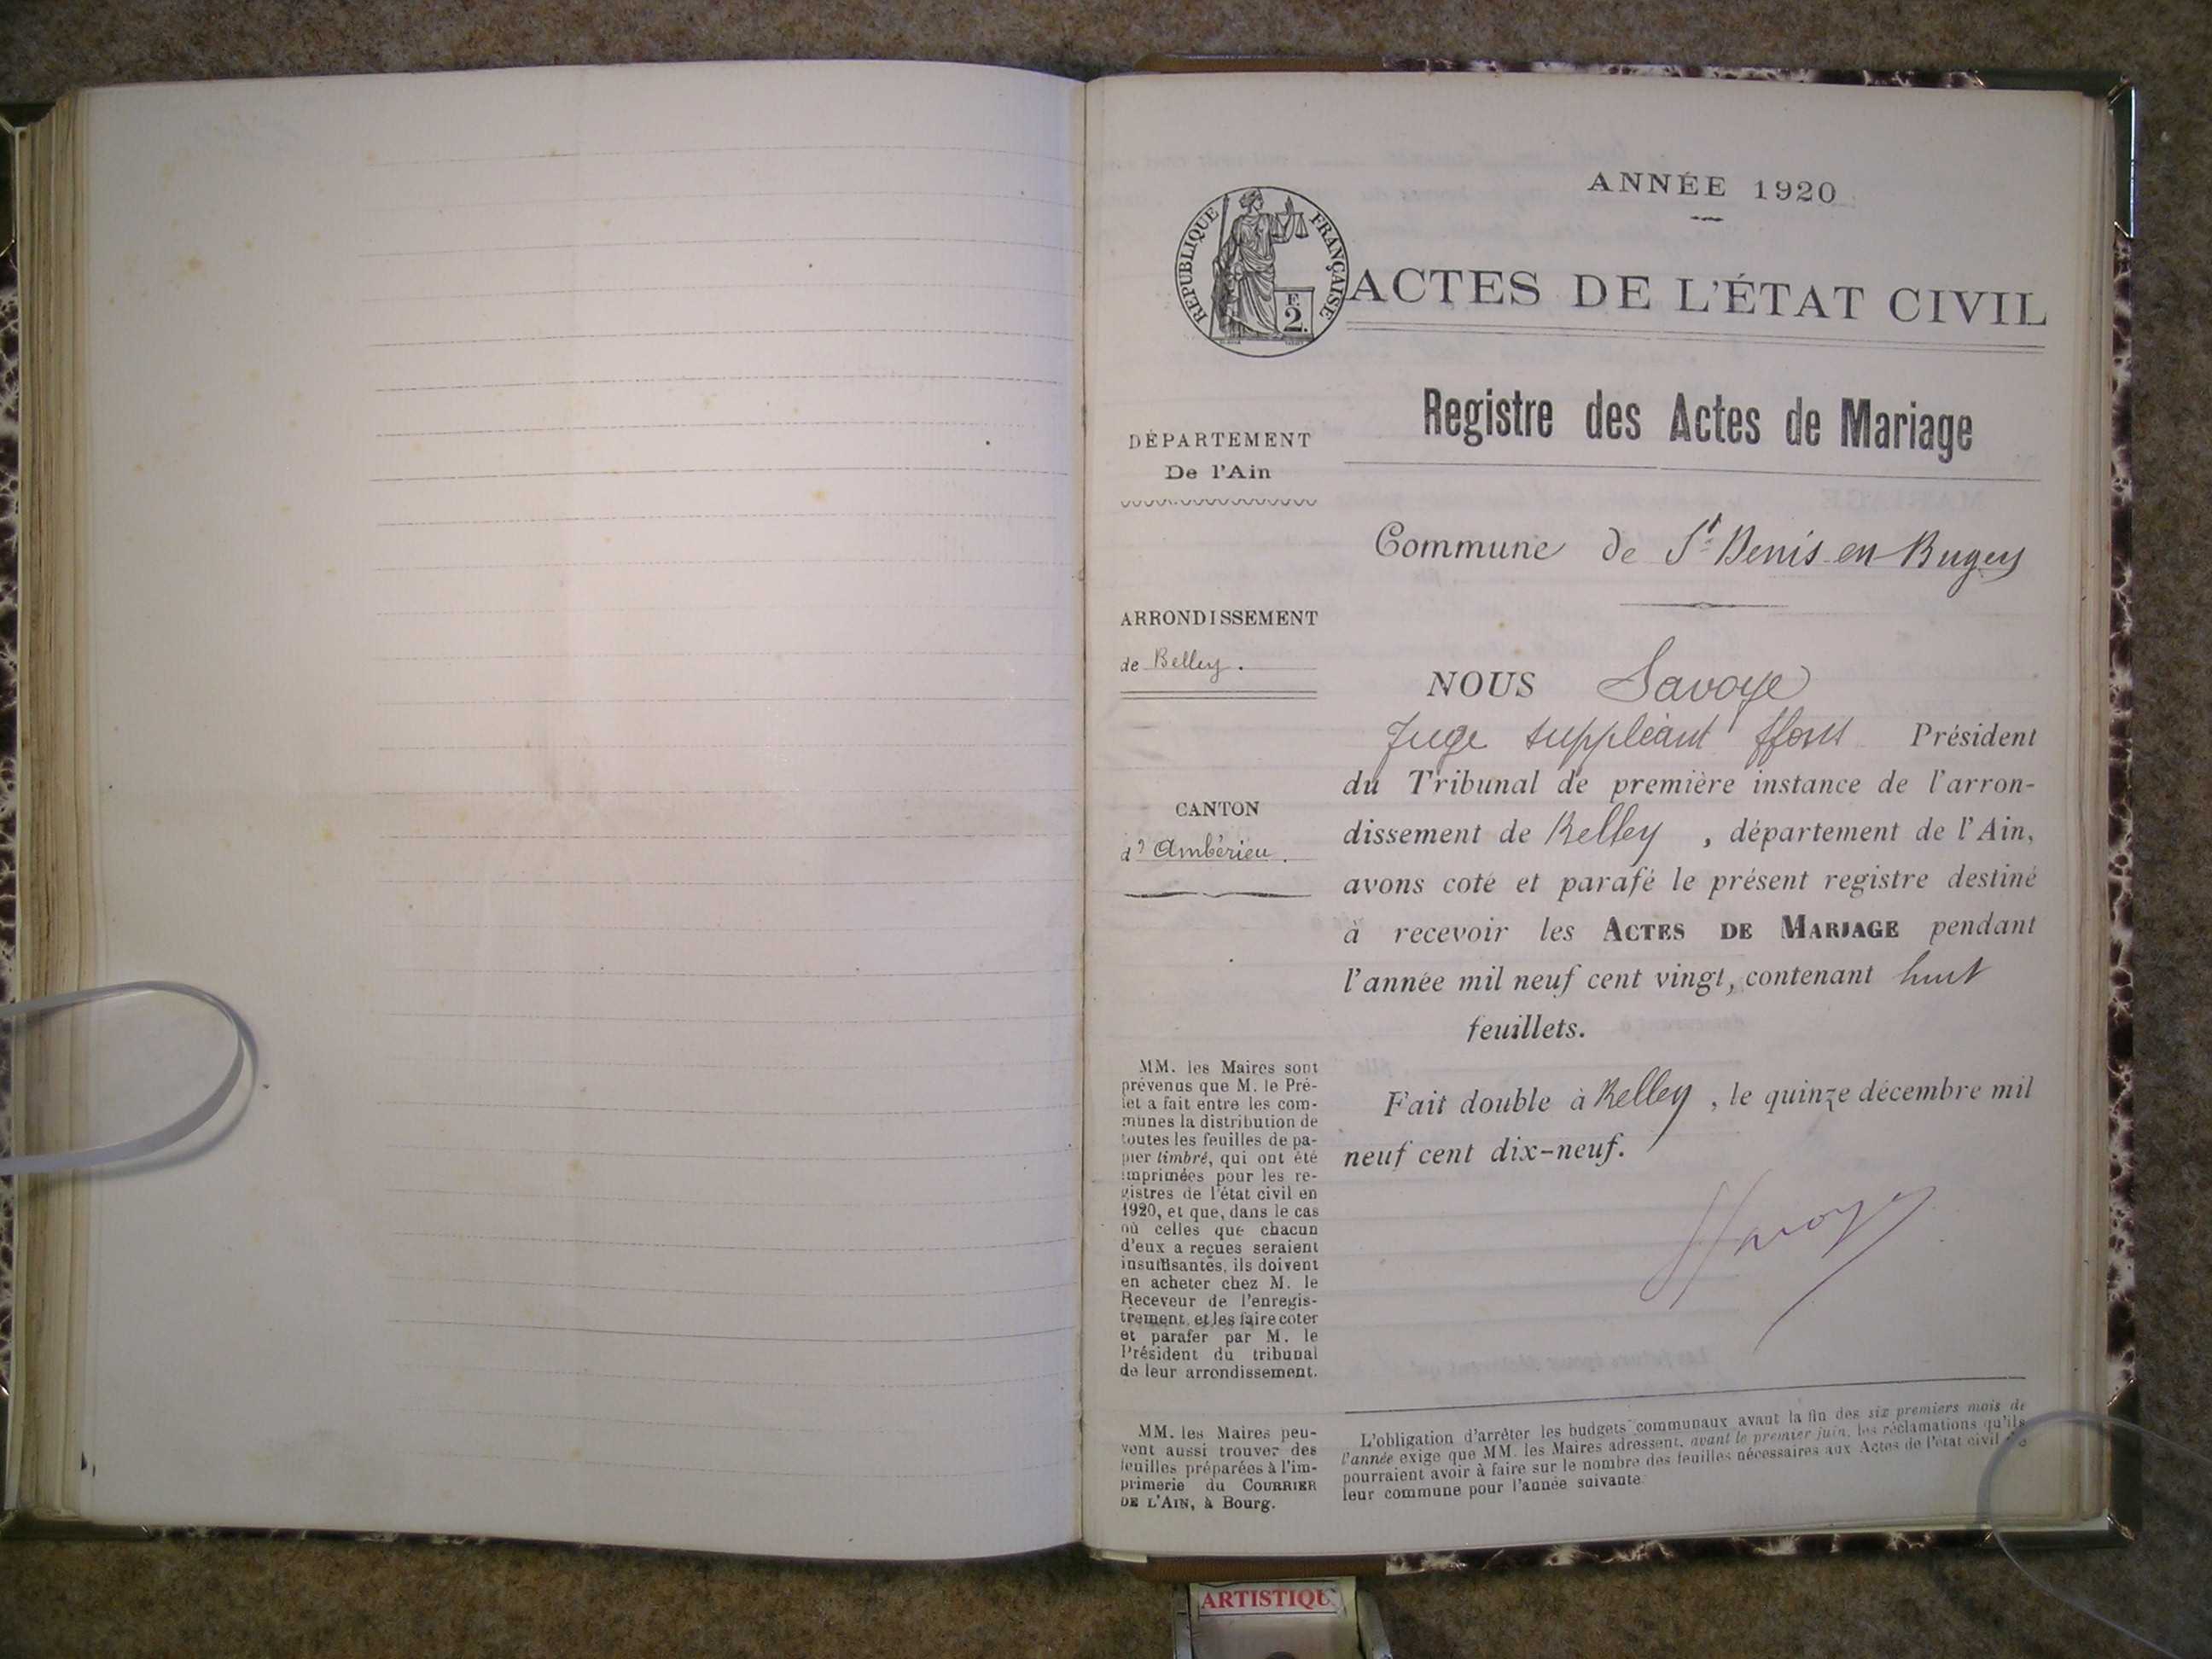 ANNÉE 1920
RÉPUBLIQUE FRANÇAISE
F.
2.
ACTES DE L'ÉTAT CIVIL
Registre des Actes de Mariage
DÉPARTEMENT
De l'Ain
Commune de St Denis-en-Bugey
ARRONDISSEMENT
de Belley.
NOUS Savoye
Juge suppléant ffons Président
du Tribunal de première instance de l'arron-
dissement de Belley, département de l'Ain,
avons coté et parafé le présent registre destiné
à recevoir les ACTES DE MARIAGE pendant
l'année mil neuf cent vingt, contenant huit
feuillets.
Fait double à Belley, le quinze décembre mil
neuf cent dix-neuf.
Savoye
CANTON
d'Ambérieu.
MM. les Maires sont
prévenus que M. le Pré-
fet a fait entre les com-
munes la distribution de
toutes les feuilles de pa-
pier timbré, qui ont été
imprimées pour les re-
gistres de l'état civil en
1920, et que, dans le cas
où celles que chacun
d'eux a reçues seraient
insuffisantes, ils doivent
en acheter chez M. le
Receveur de l'enregis-
trement, et les faire coter
et parafer par M. le
Président du tribunal
de leur arrondissement.
MM. les Maires peu-
vent aussi trouver des
feuilles préparées à l'im-
primerie du COURRIER
DE L'AIN, à Bourg.
L'obligation d'arrêter les budgets communaux avant la fin des six premiers mois de
l'année exige que MM. les Maires adressent, avant le premier juin, les réclamations qu'ils
pourraient avoir à faire sur le nombre des feuilles nécessaires aux Actes de l'état civil de
leur commune pour l'année suivante.
ARTISTIQU